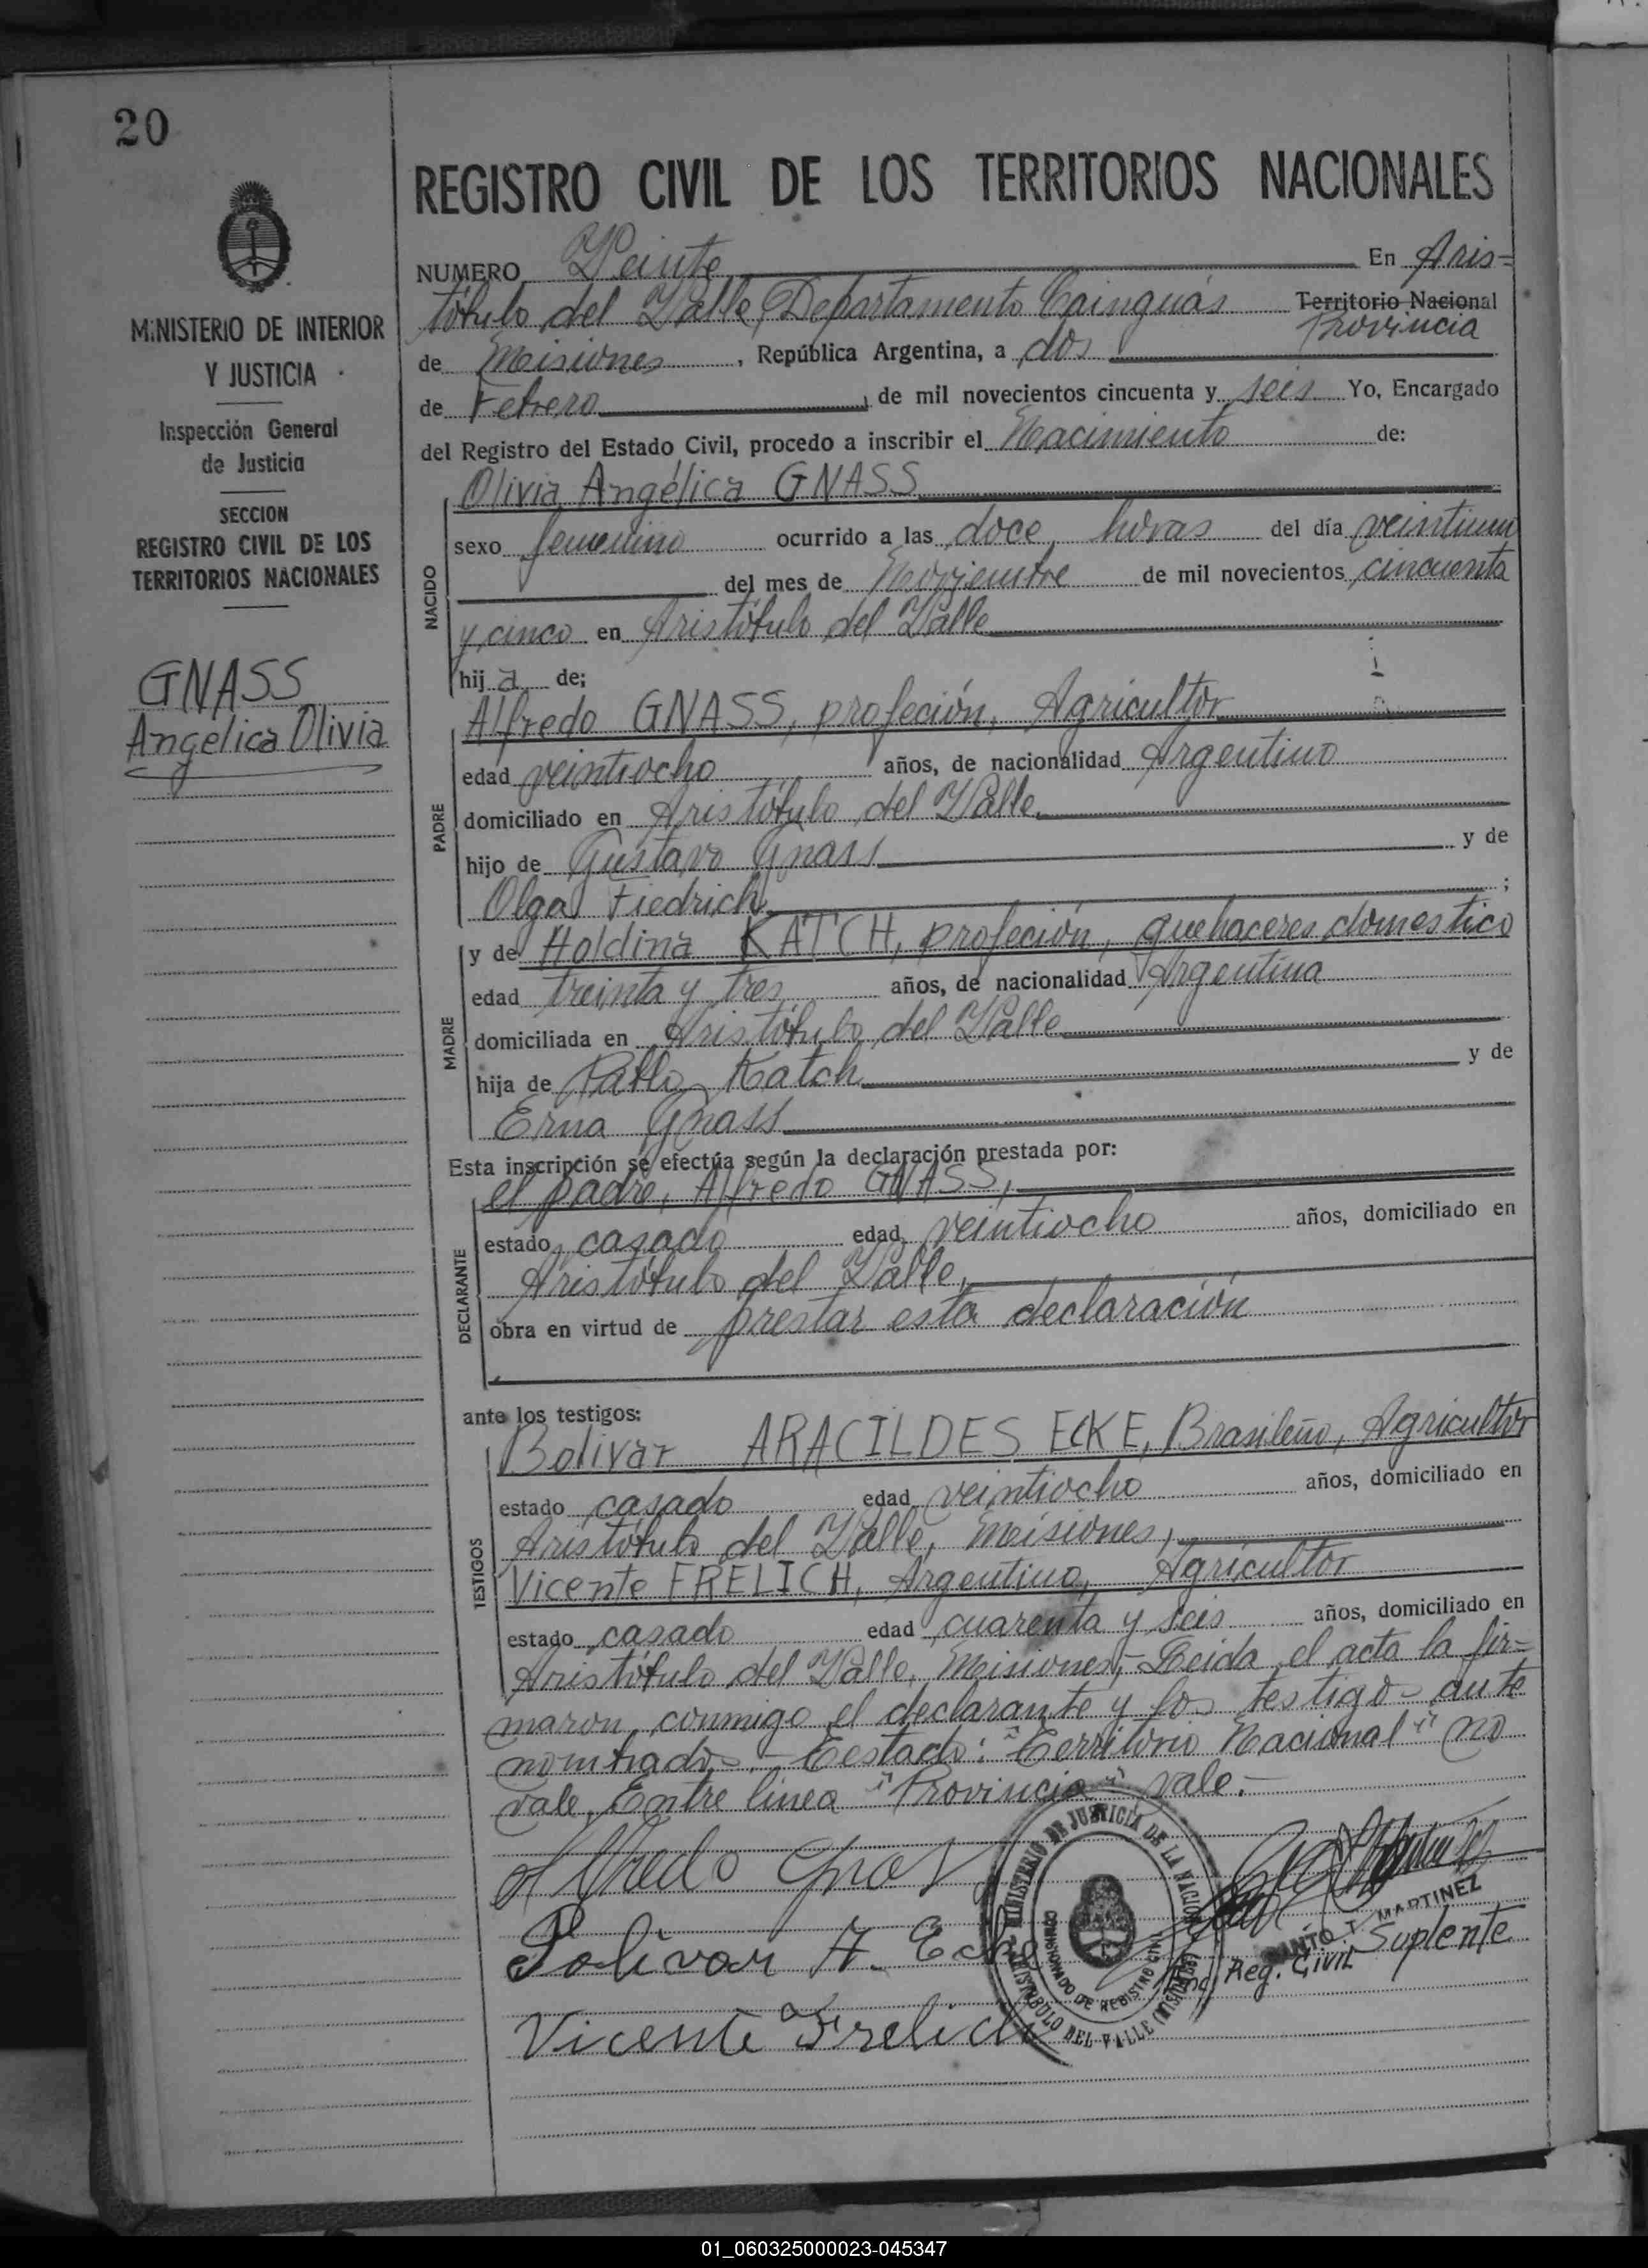 20
REGISTRO CIVIL DE LOS TERRITORIOS NACIONALES
MINISTERIO DE INTERIOR
Y JUSTICIA
Inspección General
de Justicia
SECCION
REGISTRO CIVIL DE LOS
TERRITORIOS NACIONALES
GNASS
Angelica Olivia
NUMERO Veinte En Aris=
tóbulo del Valle, Departamento Cainguás Territorio Nacional
Provincia
de Misiones, República Argentina, a dos
de Febrero de mil novecientos cincuenta y seis Yo, Encargado
del Registro del Estado Civil, procedo a inscribir el Nacimiento de:
NACIDO
Olivia Angélica GNASS
sexo femenino ocurrido a las doce horas del día veintiun
del mes de Noviembre de mil novecientos cincuenta
y cinco en Aristóbulo del Valle
hija de;
PADRE
Alfredo GNASS, profeción, Agricultor
edad veintiocho años, de nacionalidad Argentino
domiciliado en Aristóbulo del Valle
hijo de Gustavo Gnass y de
Olga Fiedrich;
MADRE
y de Holdina KATCH, profeción, quehaceres domestico
edad treinta y tres años, de nacionalidad Argentina
domiciliada en Aristóbulo del Valle
hija de Pablo Katch y de
Erna Gnass
Esta inscripción se efectúa según la declaración prestada por:
DECLARANTE
el padre, Alfredo GNASS,
estado casado edad veintiocho años, domiciliado en
Aristóbulo del Valle,
obra en virtud de prestar esta declaración
ante los testigos:
TESTIGOS
Bolivar ARACILDES ECKE, Brasileño, Agricultor
estado casado edad veintiocho años, domiciliado en
Aristóbulo del Valle, Misiones,
Vicente FRELICH, Argentino, Agricultor
estado casado edad cuarenta y seis años, domiciliado en
Aristóbulo del Valle, Misiones,- Leida el acta la fir=
maron conmigo el declarante y los testigos ante
nombrados.- Testado: "Territorio Nacional" no
vale, Entre linea "Provincia" vale.-
Alfredo Gnas
Bolivar A. Ecke
Vicente Frelich
MINISTERIO DE JUSTICIA DE LA NACION
COMISIONADO DE REGISTRO CIVIL
ARISTOBULO DEL VALLE (MISIONES)
SANTO T. MARTINEZ
Enc. Reg. Civil Suplente
01_060325000023-045347